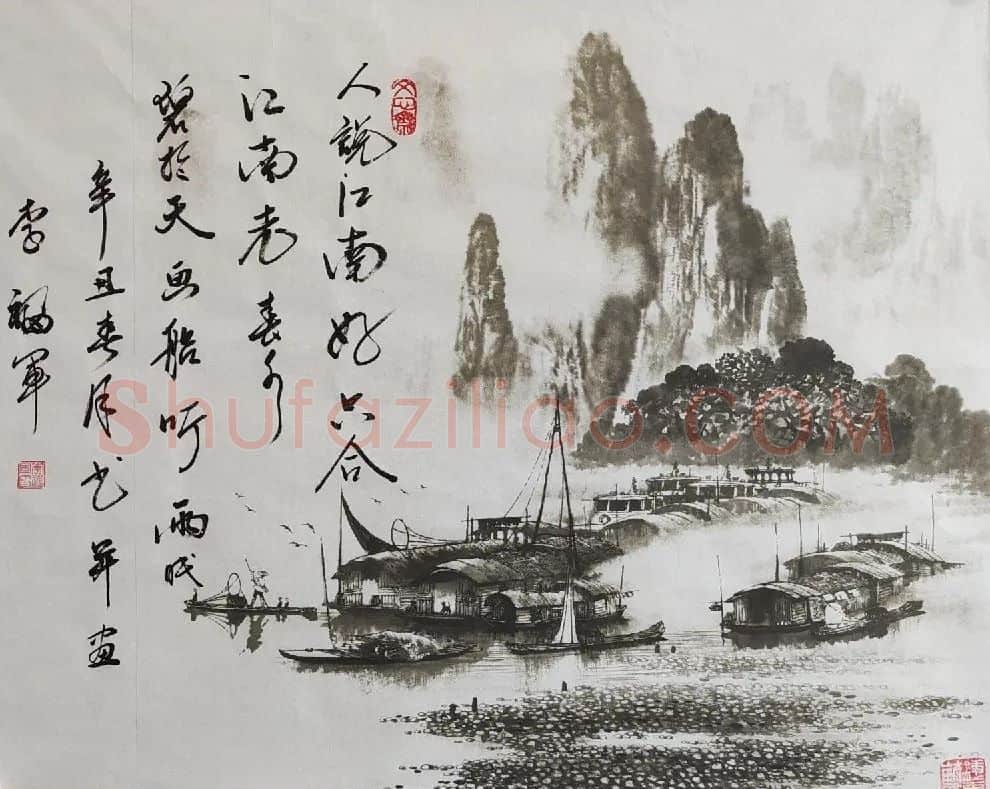 人說江南好只合
江南老春水
碧於天画船听雨眠
辛丑春月书并画
李福軍
Shufaziliao.COM